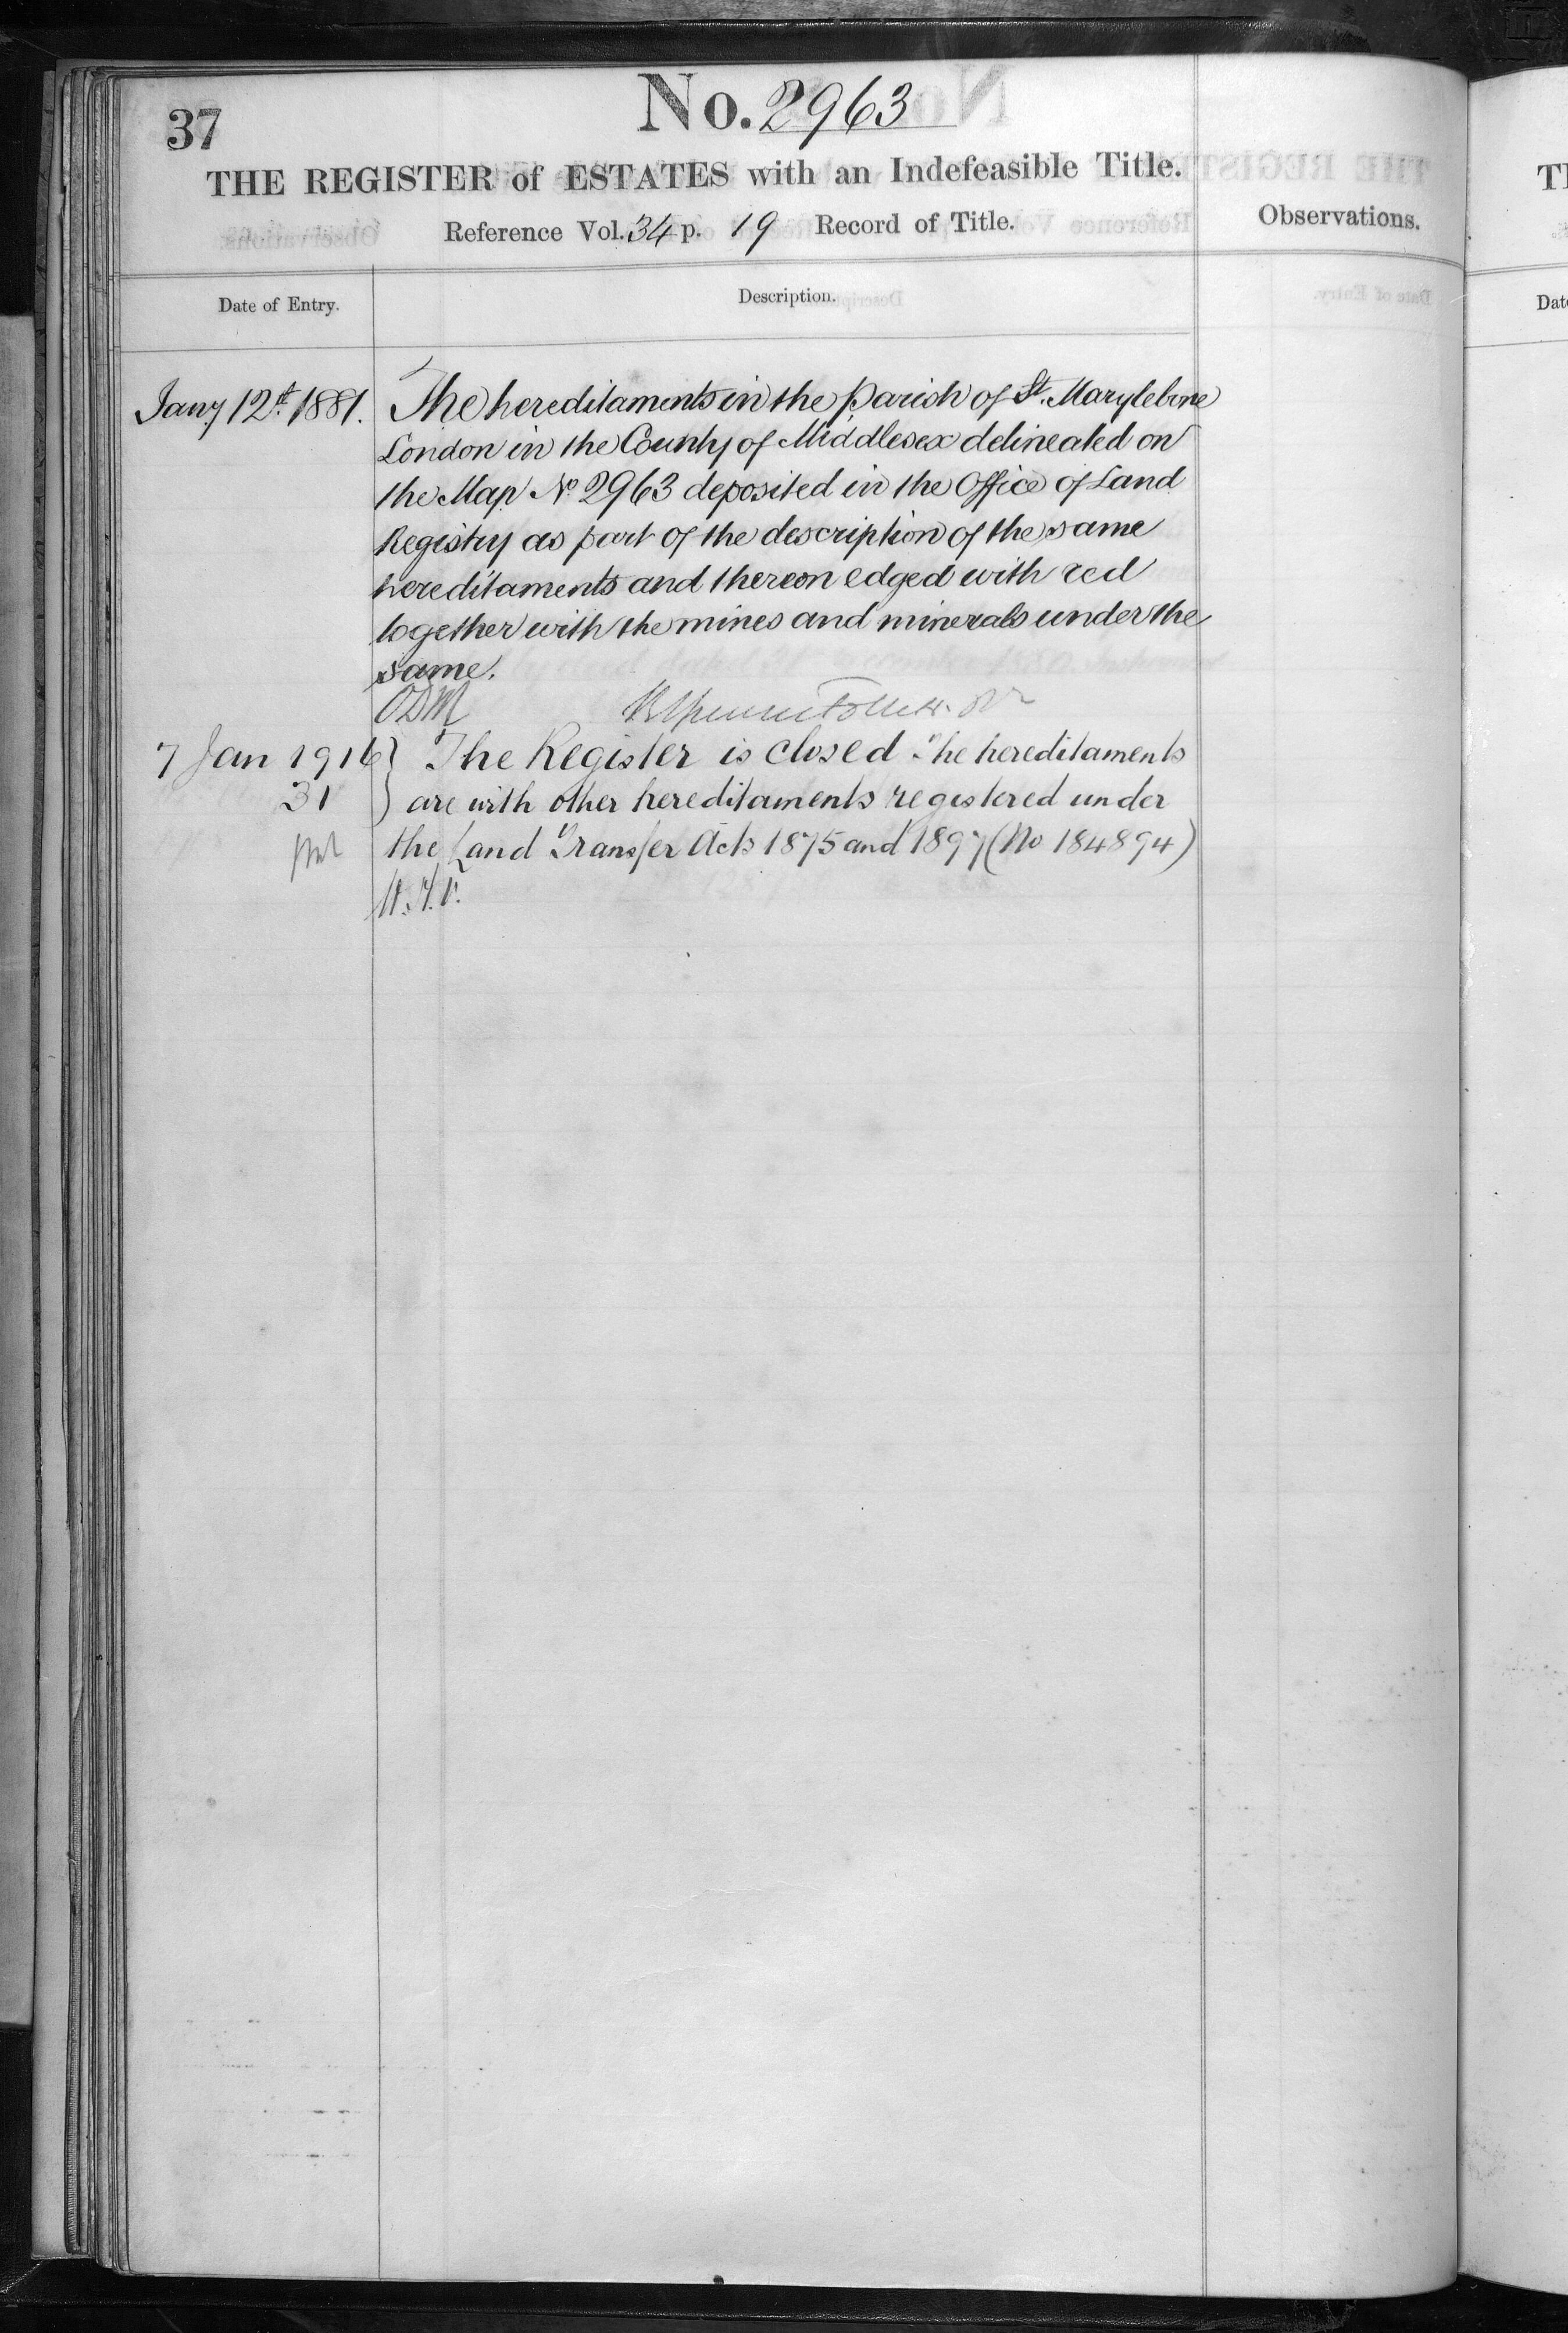 37
No. 2963
THE REGISTER of ESTATES with an Indefeasible Title.
Reference Vol. 34 p. 19 Record of Title.
Observations.
Date of Entry.
Description.
Jany 12th 1881.
The hereditaments in the Parish of St. Marylebone
London in the County of Middlesex delineated on
the Map No 2963 deposited in the Office of Land
Registry as part of the description of the same
hereditaments and thereon edged with red
together with the mines and minerals under the
same.
ODM
7 Jan 1916
31
The Register is closed The hereditaments
are with other hereditaments registered under
the Land Transfer Acts 1875 and 1897 (No 184894)